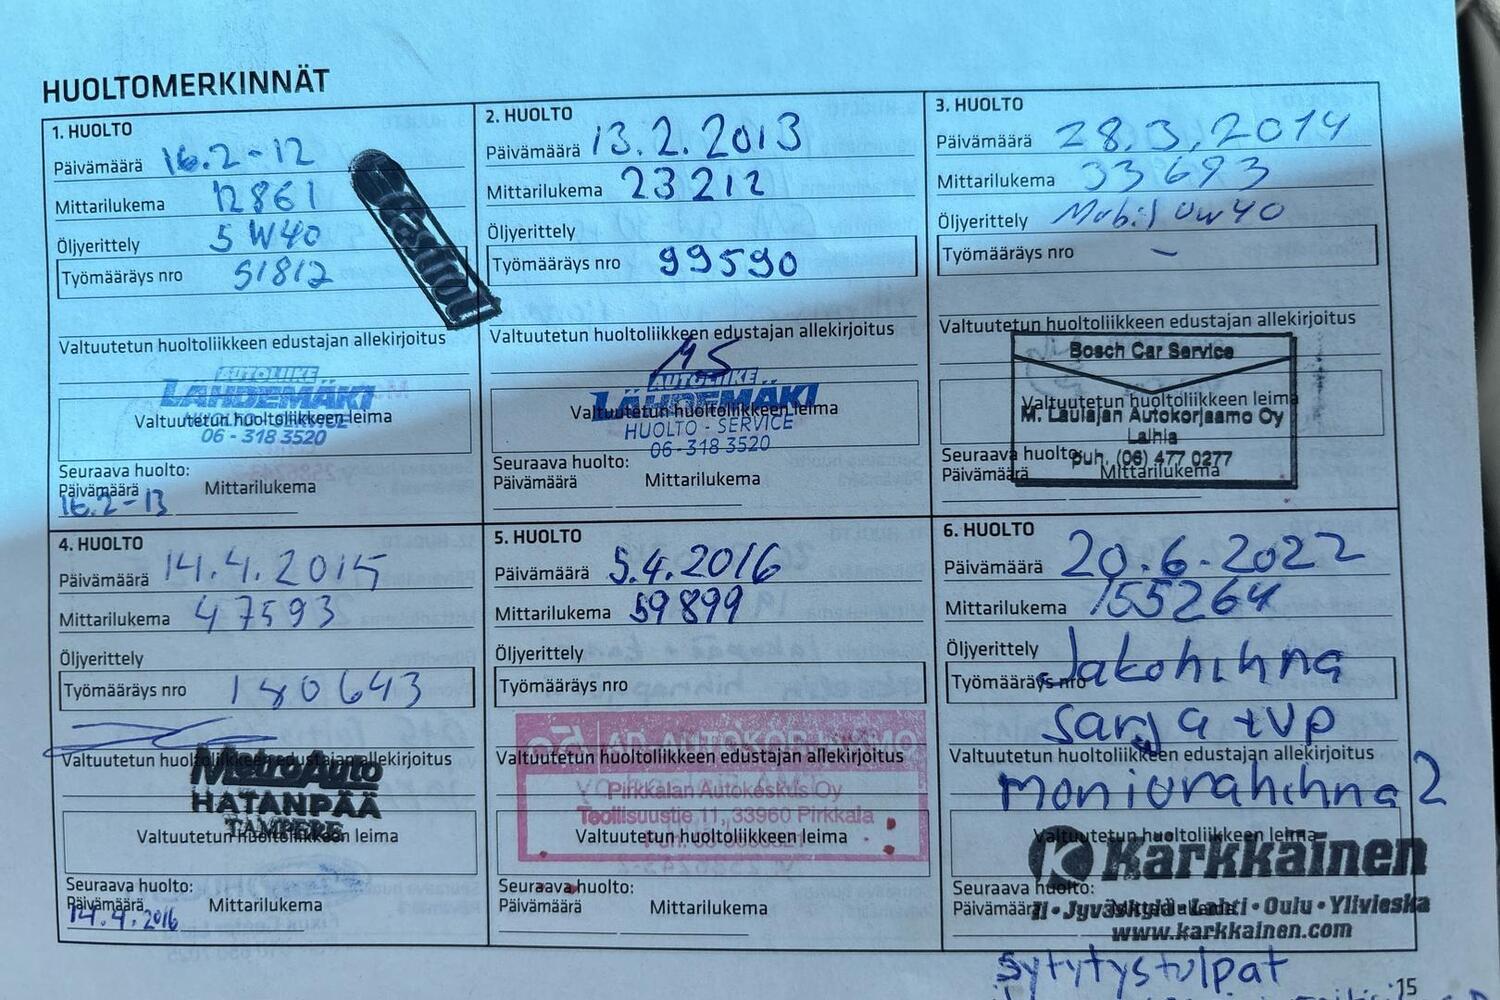 HUOLTOMERKINNÄT
1. HUOLTO
Päivämäärä 16.2-12
Mittarilukema 12861
Öljyerittely 5W40
Työmääräys nro 51812
Valtuutetun huoltoliikkeen edustajan allekirjoitus
AUTOLIIKE
LÄHDEMÄKI
Valtuutetun huoltoliikkeen leima
HUOLTO - SERVICE
06 - 318 3520
Seuraava huolto:
Päivämäärä Mittarilukema
16.2-13
2. HUOLTO
Päivämäärä 13.2.2013
Mittarilukema 23212
Öljyerittely
Työmääräys nro 99590
Valtuutetun huoltoliikkeen edustajan allekirjoitus
AUTOLIIKE
LÄHDEMÄKI
Valtuutetun huoltoliikkeen leima
HUOLTO - SERVICE
06 - 318 3520
Seuraava huolto:
Päivämäärä Mittarilukema
3. HUOLTO
Päivämäärä 28.3.2014
Mittarilukema 33693
Öljyerittely Mobil 0W40
Työmääräys nro –
Valtuutetun huoltoliikkeen edustajan allekirjoitus
Bosch Car Service
Valtuutetun huoltoliikkeen leima
M. Laulajan Autokorjaamo Oy
Laihia
puh. (06) 477 0277
Seuraava huolto:
Päivämäärä Mittarilukema
4. HUOLTO
Päivämäärä 14.4.2015
Mittarilukema 47593
Öljyerittely
Työmääräys nro 180643
Valtuutetun huoltoliikkeen edustajan allekirjoitus
MetroAuto
HATANPÄÄ
TAMPERE
Valtuutetun huoltoliikkeen leima
Seuraava huolto:
Päivämäärä Mittarilukema
14.4.2016
5. HUOLTO
Päivämäärä 5.4.2016
Mittarilukema 59899
Öljyerittely
Työmääräys nro
Valtuutetun huoltoliikkeen edustajan allekirjoitus
Pirkkalan Autokeskus Oy
Teollisuustie 11, 33960 Pirkkala
Valtuutetun huoltoliikkeen leima
Seuraava huolto:
Päivämäärä Mittarilukema
6. HUOLTO
Päivämäärä 20.6.2022
Mittarilukema 155264
Öljyerittely
Työmääräys nro
Jakohihna
sarja + VP
Valtuutetun huoltoliikkeen edustajan allekirjoitus
moniurahihna 2
Valtuutetun huoltoliikkeen leima
Kärkkäinen
Seuraava huolto:
Päivämäärä Mittarilukema
Ii • Jyväskylä • Lahti • Oulu • Ylivieska
www.karkkainen.com
sytytystulpat
15